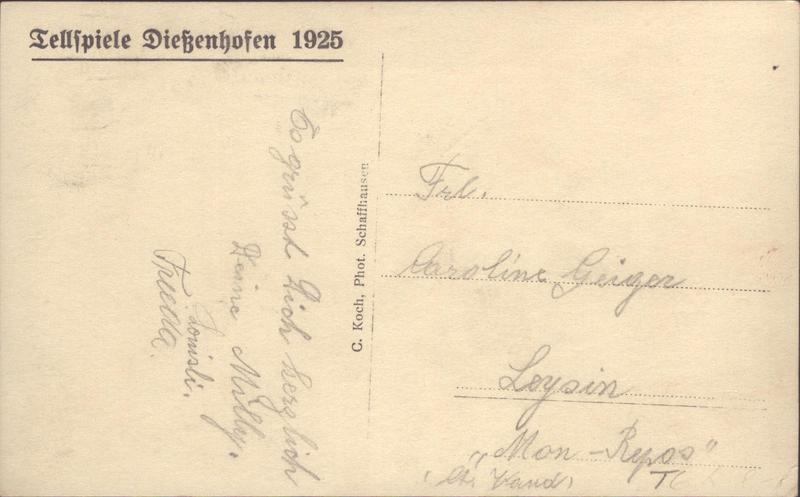 Tellspiele Dießenhofen 1925
Es grüsst Dich herzlich
Deine Milly.
Louisli.
Frieda.
C. Koch, Phot. Schaffhausen
Frl.
Caroline Geiger
Leysin
„Mon-Repos"
(Ct. Vaud)